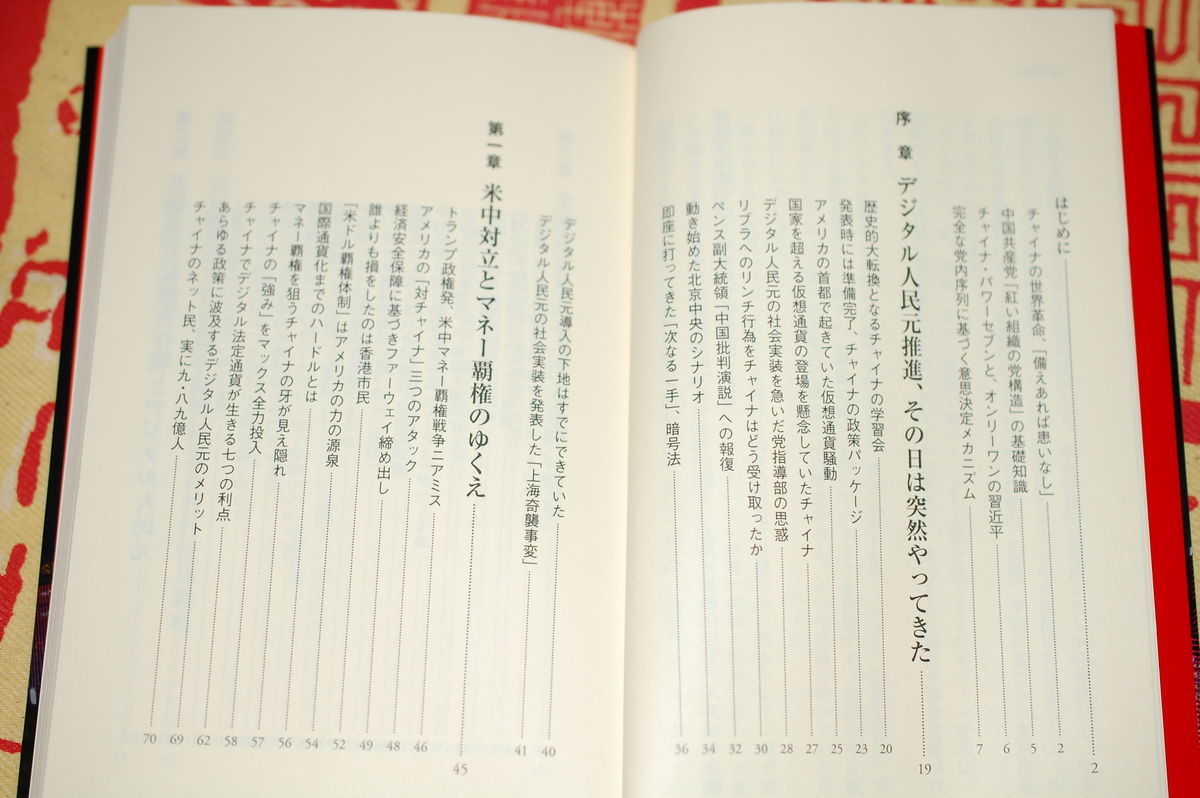 はじめに 2
チャイナの世界革命、「備えあれば患いなし」 2
中国共産党「紅い組織の党構造」の基礎知識 5
チャイナ・パワーセブンと、オンリーワンの習近平 6
完全な党内序列に基づく意思決定メカニズム 7
序章 デジタル人民元推進、その日は突然やってきた 19
歴史的大転換となるチャイナの学習会 20
発表時には準備完了、チャイナの政策パッケージ 23
アメリカの首都で起きていた仮想通貨騒動 25
国家を超える仮想通貨の登場を懸念していたチャイナ 27
デジタル人民元の社会実装を急いだ党指導部の思惑 28
リブラへのリンチ行為をチャイナはどう受け取ったか 30
ペンス副大統領「中国批判演説」への報復 32
動き始めた北京中央のシナリオ 34
即座に打ってきた「次なる一手」、暗号法 36
デジタル人民元導入の下地はすでにできていた 40
デジタル人民元の社会実装を発表した「上海奇襲事変」 41
第一章 米中対立とマネー覇権のゆくえ 45
トランプ政権発、米中マネー覇権戦争ニアミス 46
アメリカの「対チャイナ」三つのアタック 48
経済安全保障に基づきファーウェイ締め出し 49
誰よりも損をしたのは香港市民 52
「米ドル覇権体制」はアメリカの力の源泉 54
国際通貨化までのハードルとは 56
マネー覇権を狙うチャイナの牙が見え隠れ 57
チャイナの「強み」をマックス全力投入 58
チャイナでデジタル法定通貨が生きる七つの利点 62
あらゆる政策に波及するデジタル人民元のメリット 69
チャイナのネット民、実に九・八九億人 70